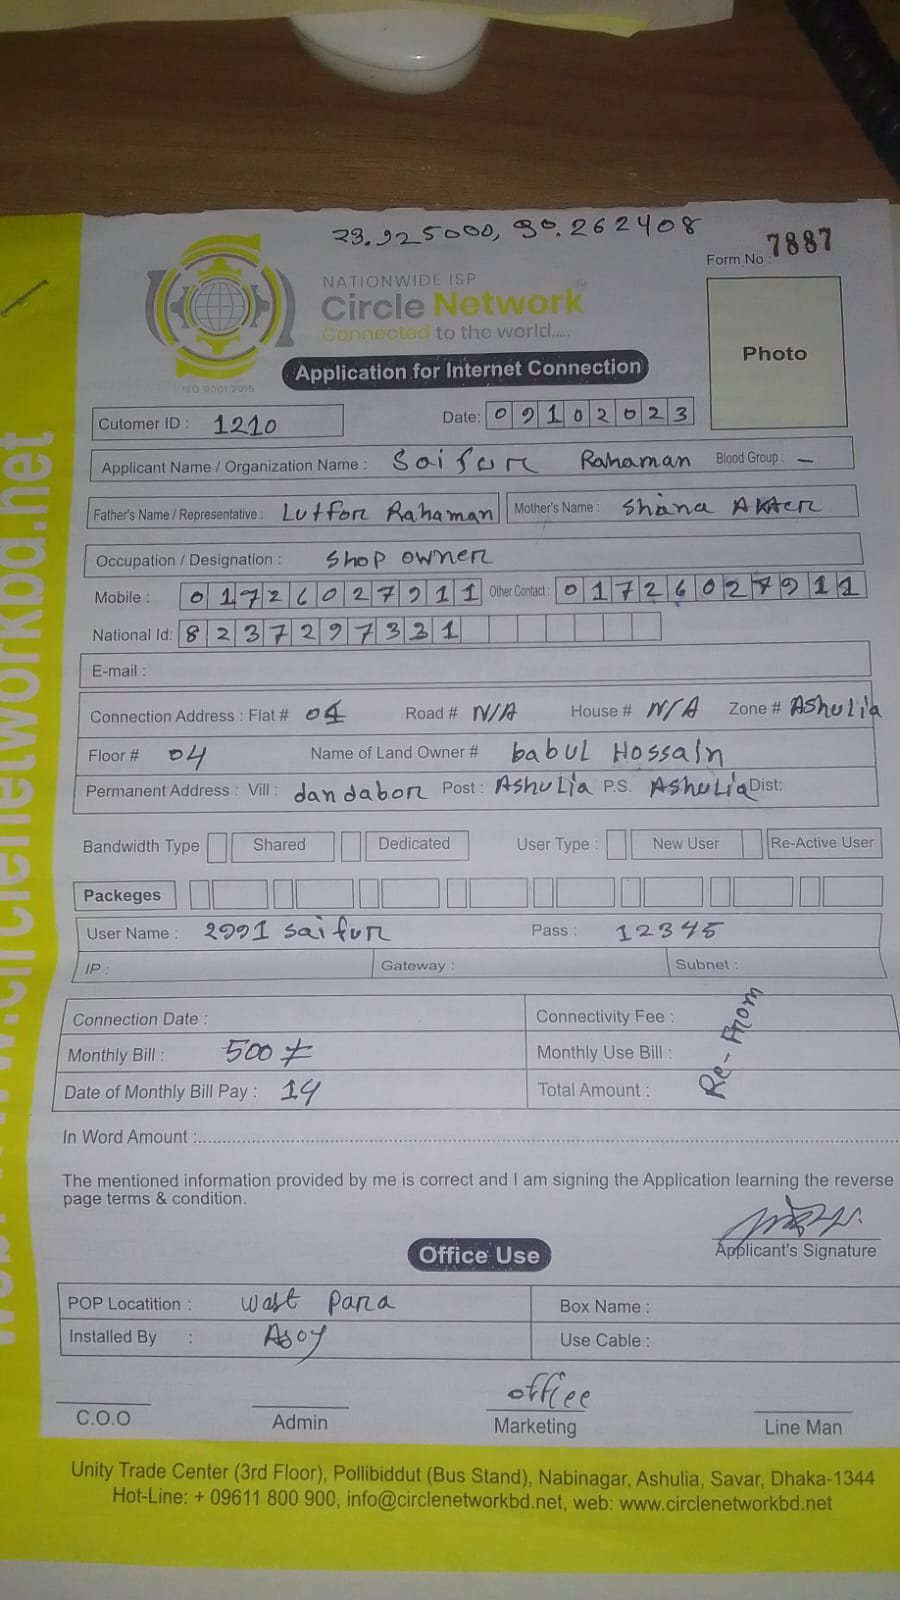 23.925000, 90.262408
Form No : 7887
NATIONWIDE ISP
Circle Network
Connected to the world.....
ISO 9001:2015
Photo
Application for Internet Connection
Cutomer ID : 1210
Date: 09102023
Applicant Name / Organization Name : Saifur Rahaman Blood Group : –
Father's Name / Representative : Lutfor Rahaman Mother's Name : Shana Akter
Occupation / Designation : Shop owner
Mobile : 01726027911 Other Contact : 01726027911
National Id: 8237297331
E-mail :
Connection Address : Flat # 04 Road # N/A House # N/A Zone # Ashulia
Floor # 04 Name of Land Owner # babul Hossain
Permanent Address : Vill : dandabor Post : Ashulia P.S. Ashulia Dist:
Bandwidth Type Shared Dedicated User Type : New User Re-Active User
Packeges
User Name : 2991 saifur Pass : 12345
IP : Gateway : Subnet :
Connection Date : Connectivity Fee :
Monthly Bill : 500 Monthly Use Bill :
Date of Monthly Bill Pay : 14 Total Amount :
Re-From
In Word Amount :
The mentioned information provided by me is correct and I am signing the Application learning the reverse
page terms & condition.
Applicant's Signature
Office Use
POP Locatition : wast para Box Name :
Installed By : Asoy Use Cable :
office
C.O.O Admin Marketing Line Man
Unity Trade Center (3rd Floor), Pollibiddut (Bus Stand), Nabinagar, Ashulia, Savar, Dhaka-1344
Hot-Line: + 09611 800 900, info@circlenetworkbd.net, web: www.circlenetworkbd.net
www.circlenetworkbd.net